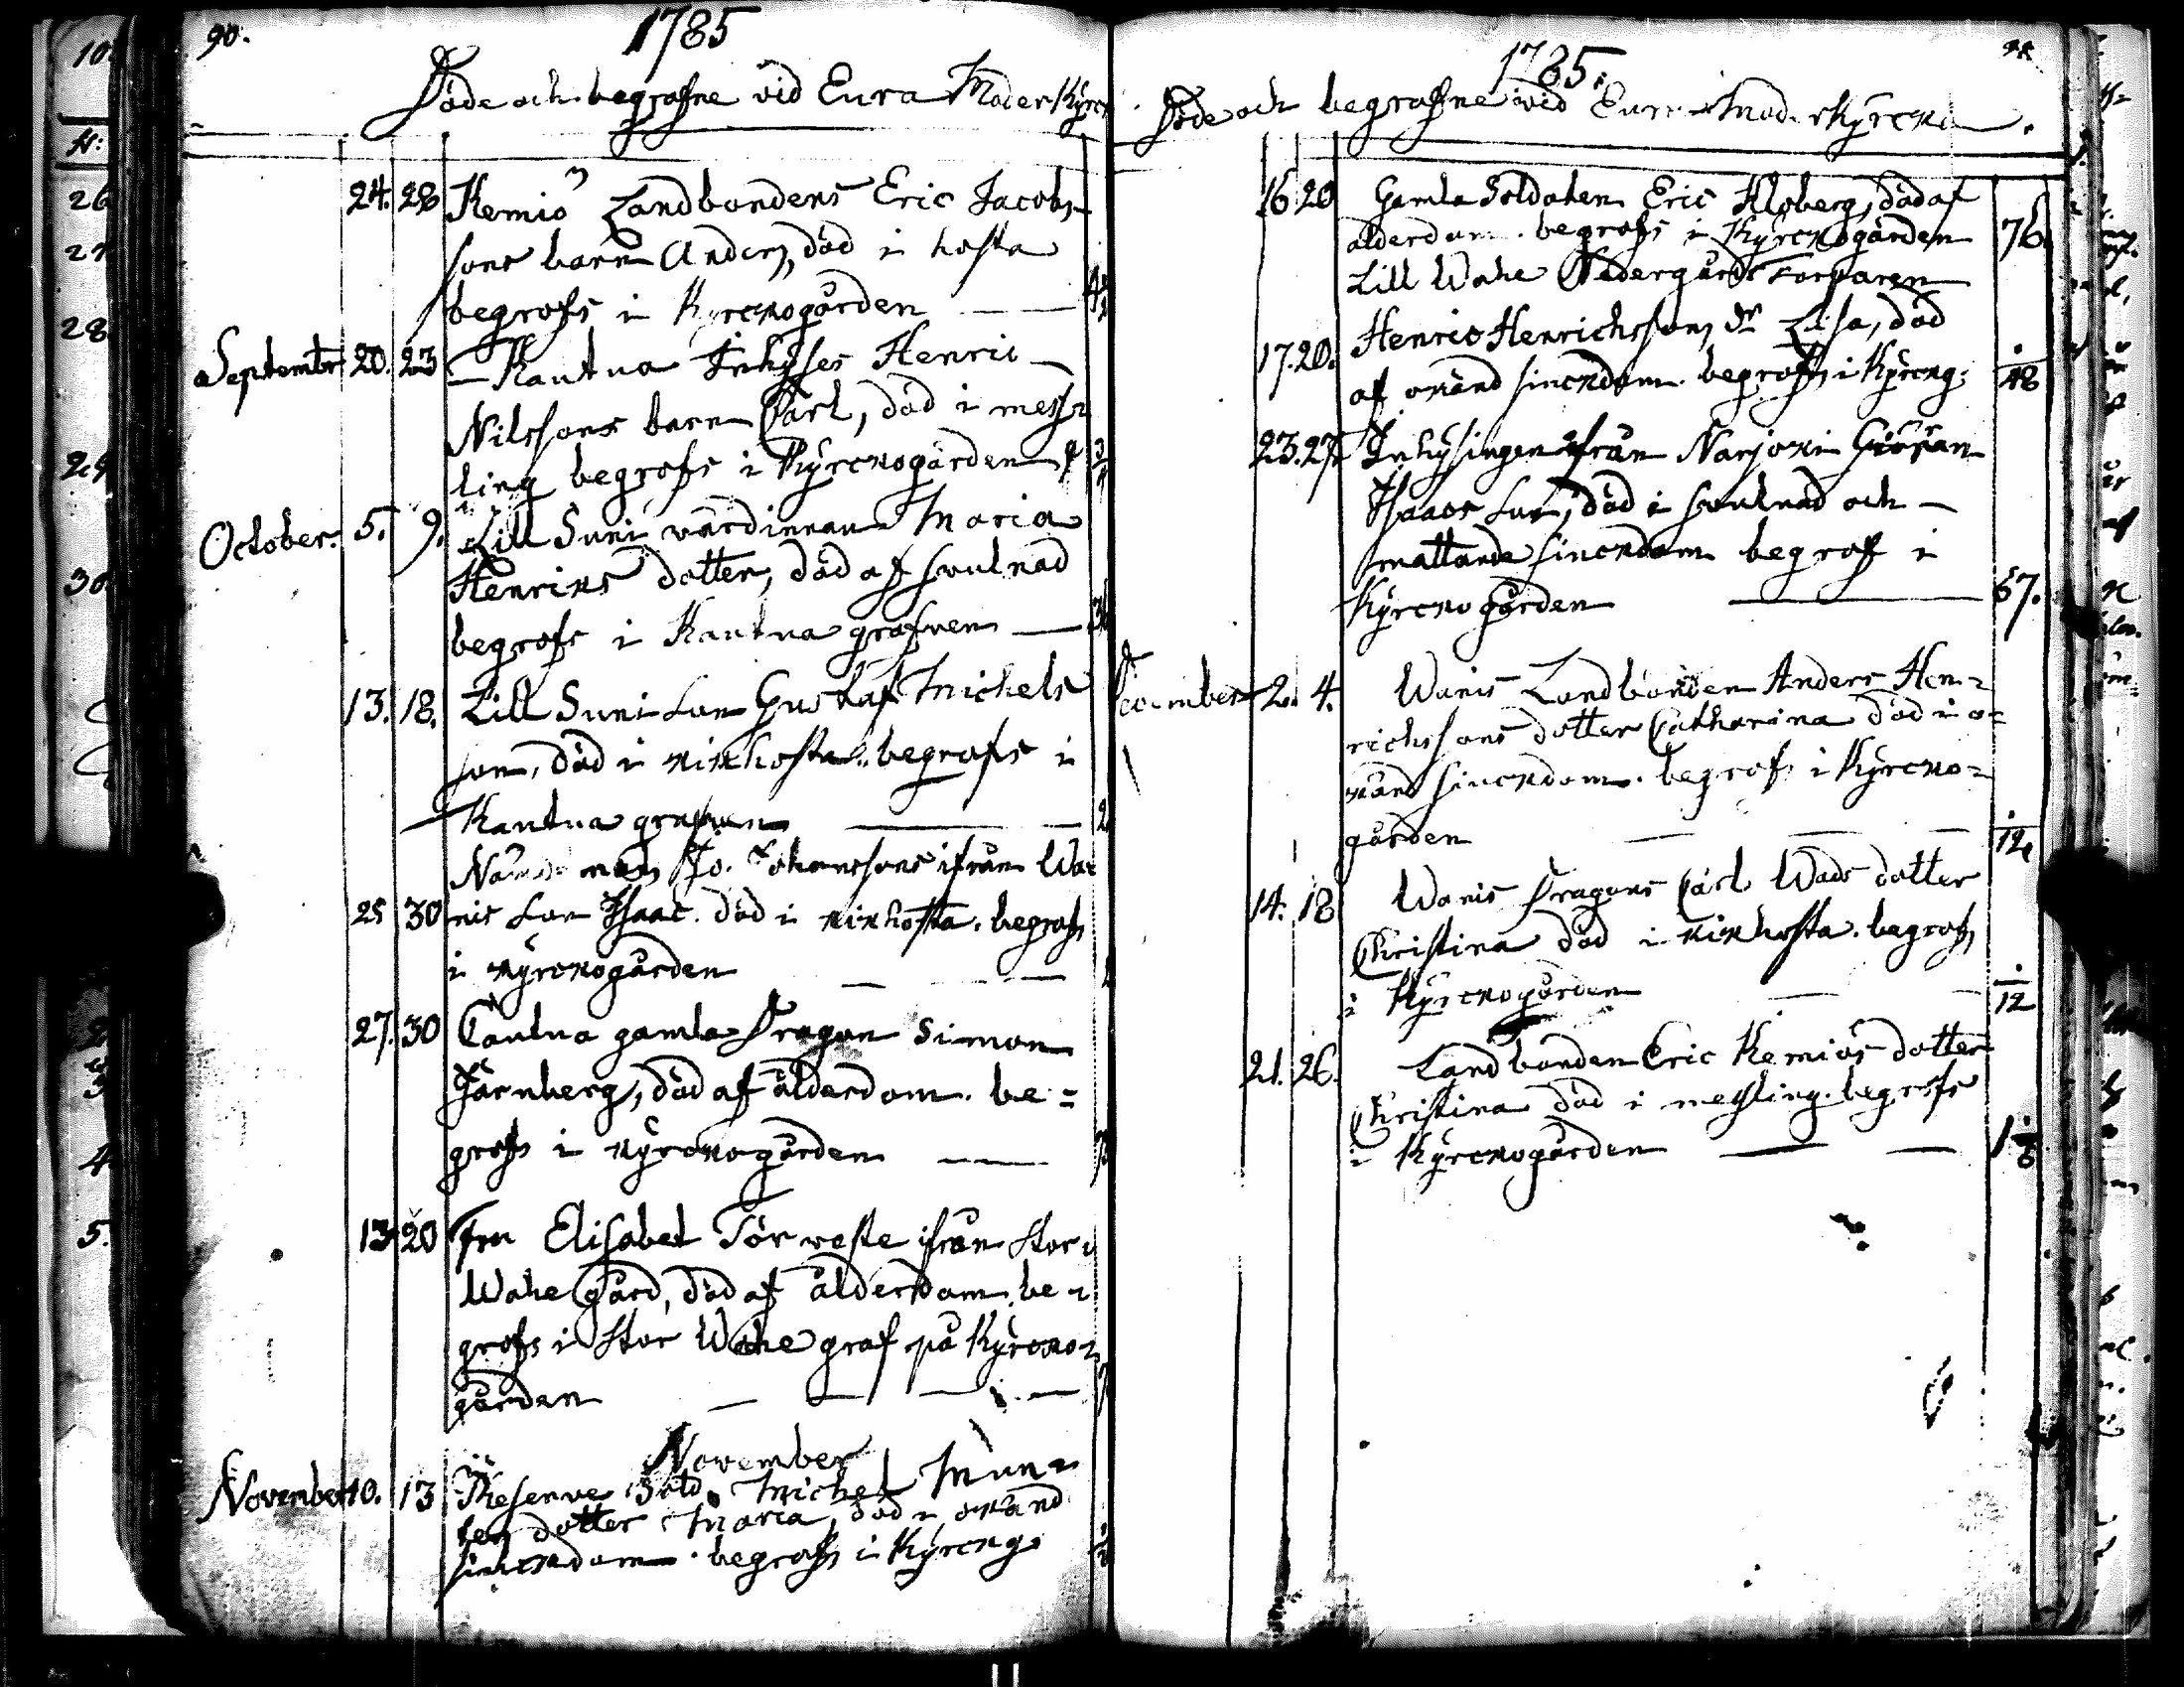 90.
1785
Döde och begrafne vid Eura Moder Kyrc
24. 28 Kemiö Landbondens Eric Jacobs
sons barn Anders, död i hosta
begrofs i Kyrckogården
Septembr 20. 23 Kautua Inhyses Henric
Nilssons barn Carl, död i mess=
ling begrofs i Kyrckogården
October. 5. 9. Lill Suni värdinnan Maria
Henrics dotter, död af svulnad
begrofs i Kautua grafven
13. 18. Lill Suni Son Gustaf Michels
son, död i kikhosta. begrofs i
Kautua grafven
Nämde man Jo. Johanssons ifrån Wa=
25 30 nis Son Isaac. död i kikhosta. begrofs
i kyrckogården
27. 30 Cautua gamla Dragon Simon
Järnberg, död af ålderdom. be=
grofs i kyrckogården
13 20 Fru Elisabet Törneste ifrån Stor
Wahe Gård, död af ålderdom. be=
grofs i Stor Wahe graf på Kyrcko=
gården
November
November 10. 13 Reserve Sold. Michel Mun=
ters dotter Maria, död i okänd
siuckdom. begrofs i Kyrckog.
1785.
Döde och begrafne vid Eura Moderkyrcka.
16. 20 Gamla Soldaten Eric Kloberg, död af
ålderdom. begrofs i Kyrckogården 76.
Lill Wahe Nedergårds Torparen
17. 20. Henric Henrichssons dr Lisa, död
af okänd siuckdom. begrofs i Kyrckog: 18
23. 27. Inhysingen ifrån Narjoki Göran
Isaacs Son, död i svulnad och
smattande siuckdom begrof i
Kyrckogården 67.
December 2. 4. Wanis Landbonden Anders Hen=
richssons dotter Catharina död i o=
känd siuckdom. begrofs i Kyrcko=
gården 12
14. 18 Wanis Dragons Carl Wads dotter
Christina död i kikhosta. begrofs
i Kyrckogården 12
21. 26. Landbonden Eric Kemiös dotter
Christina död i messling. begrofs
i Kyrckogården